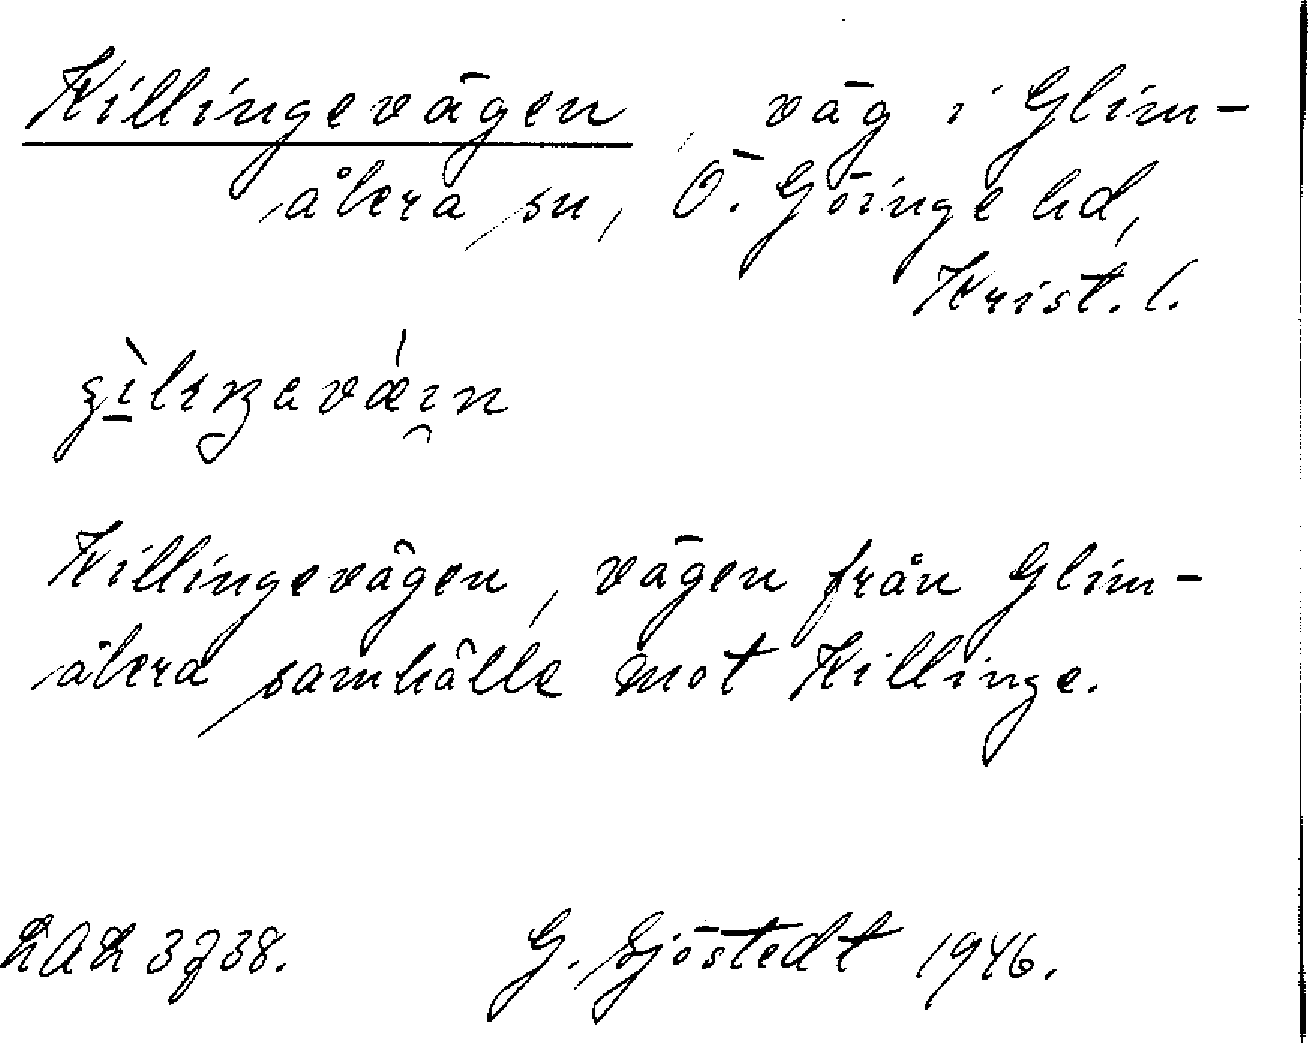 Killingevägen, väg i Glim-
åkra sn, Ö. Göinge hd,
Krist. l.
Killingevägen, vägen från Glim-
åkra samhälle mot Killinge.
LAL 3738. G. Sjöstedt 1946.